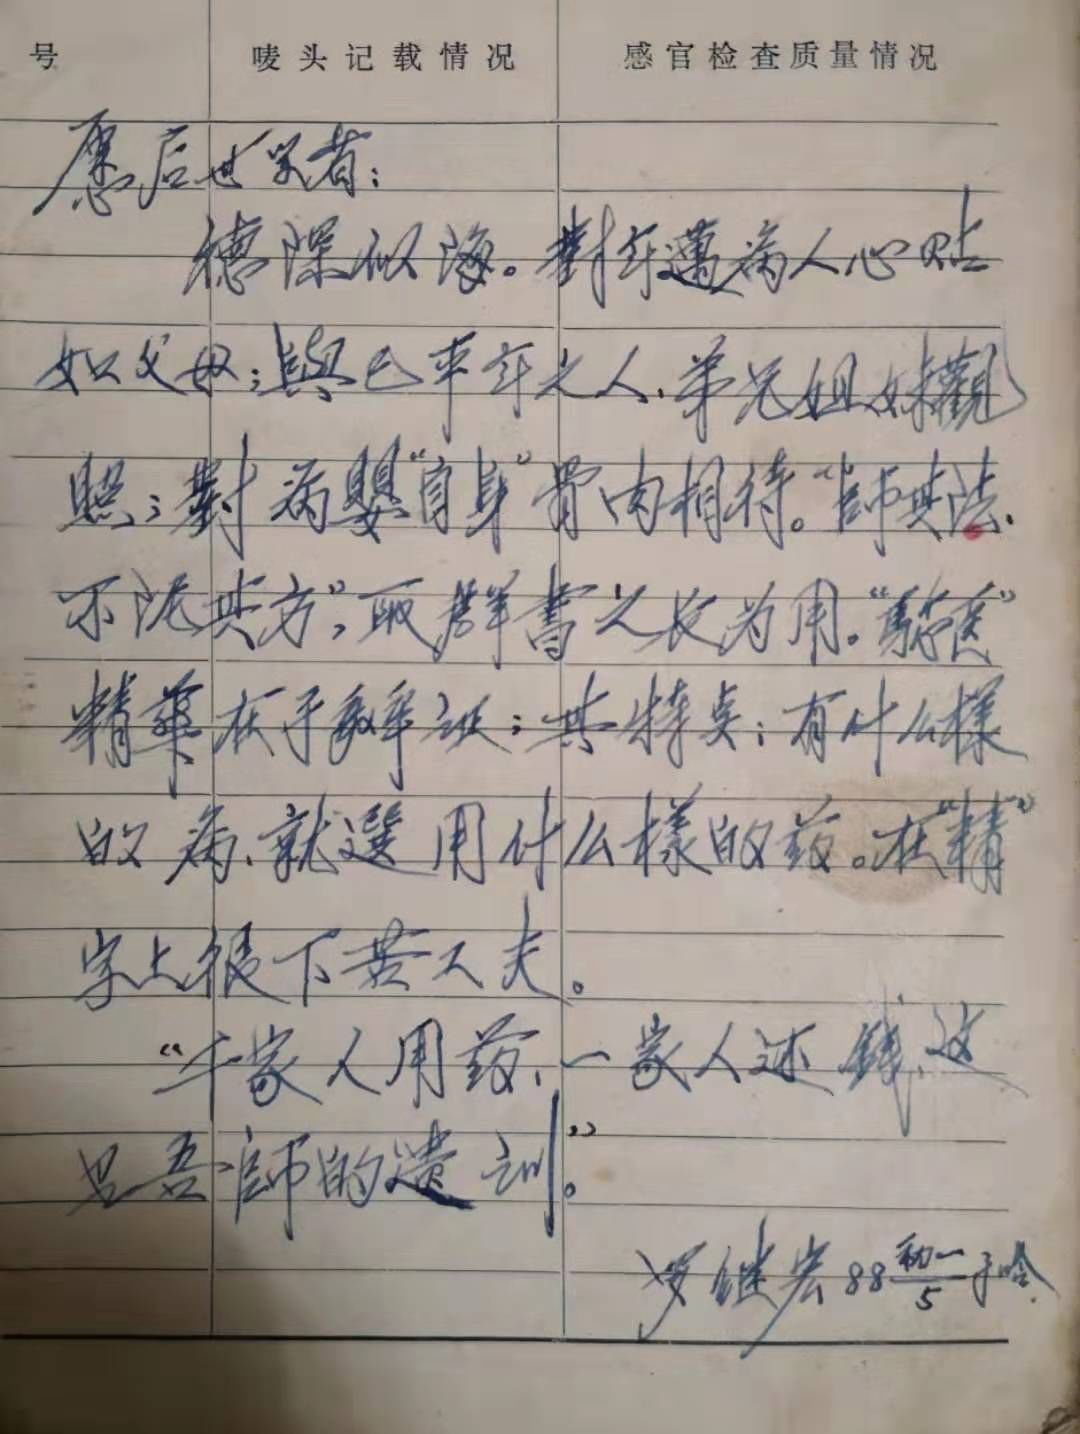 号 唛头记载情况 感官检查质量情况
愿后世学者：
德深似海。對年邁病人心贴
如父母；與己平年之人、弟兄姐妹觀
照；對病嬰“自身”骨肉相待。“師其法、
不泥其方”，取群書之长为用。“驗医”
精華在于辨证；其特点：有什么樣
的病、就選用什么樣的药。在“精”
字上很下苦工夫。
“千家人用药、一家人还錢、这
是吾師的遗训”。
罗继宏 88 初一/5 于哈